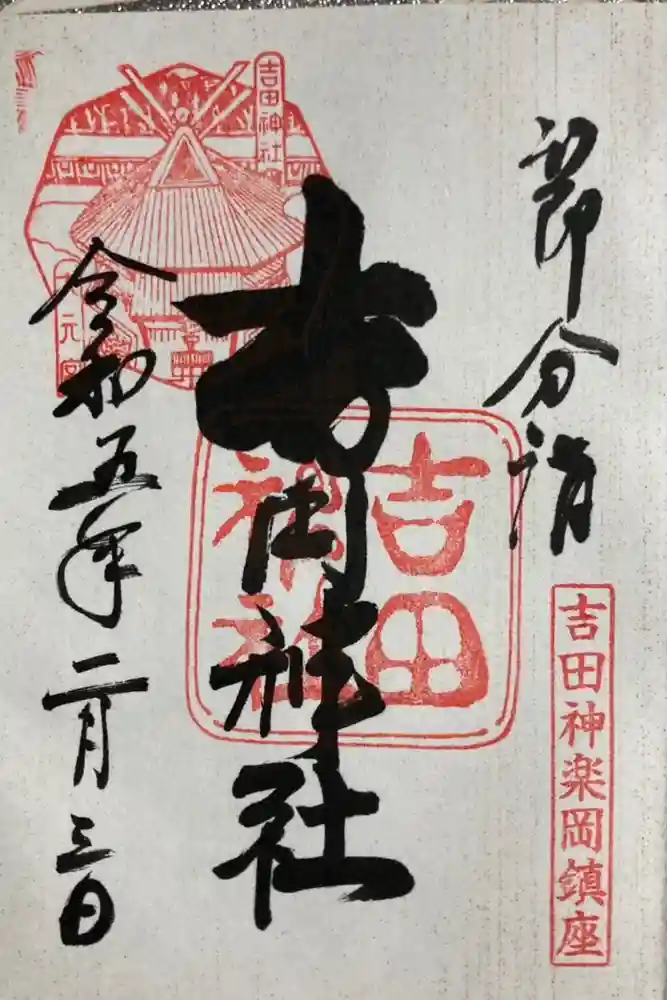 節分詣
吉田神楽岡鎮座
吉田神社
吉田
神社
吉田神社
令和五年二月三日